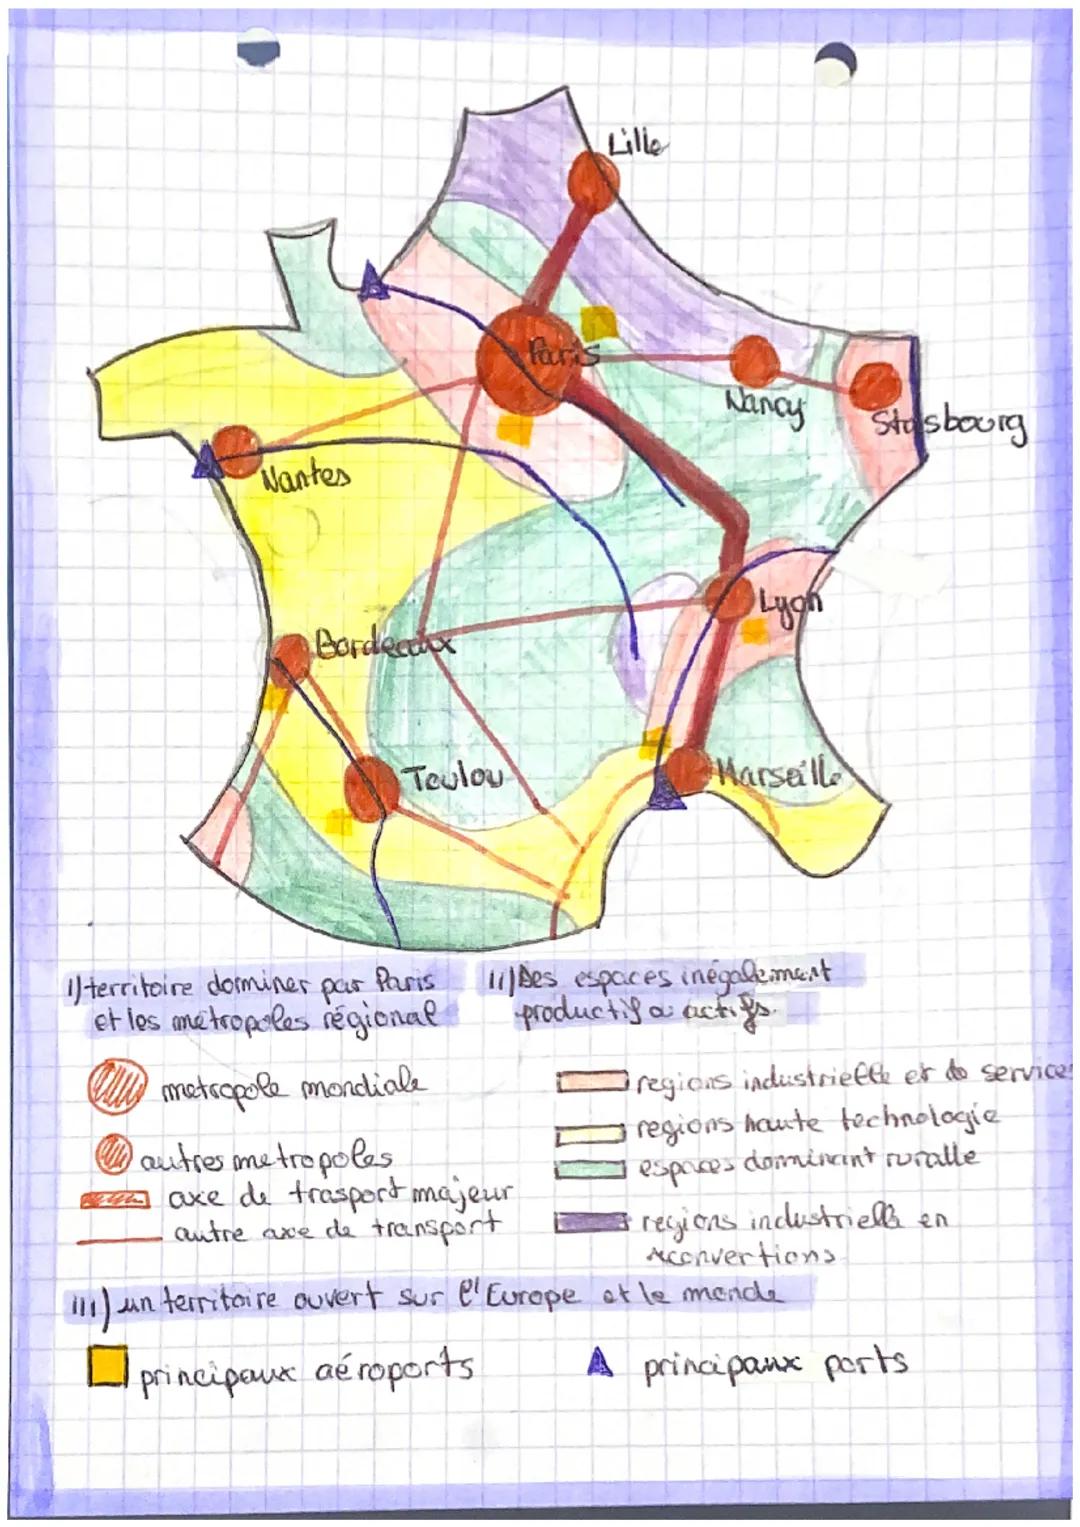 Lille
Paris
Nancy
Stasbourg
Nantes
Lyon
Bordeaux
Toulou
Marseille
I) territoire dominer par Paris
et les métropoles régional
II) Des espaces inégalement
productif ou actifs.
metropole mondiale
autres metropoles
axe de trasport majeur
autre axe de transport
regions industrielle et de service
regions haute technologie
espaces dominant ruralle
regions industrielle en
reconvertions
III) un territoire ouvert sur l'Europe et le monde
principaux aéroports
principaux ports